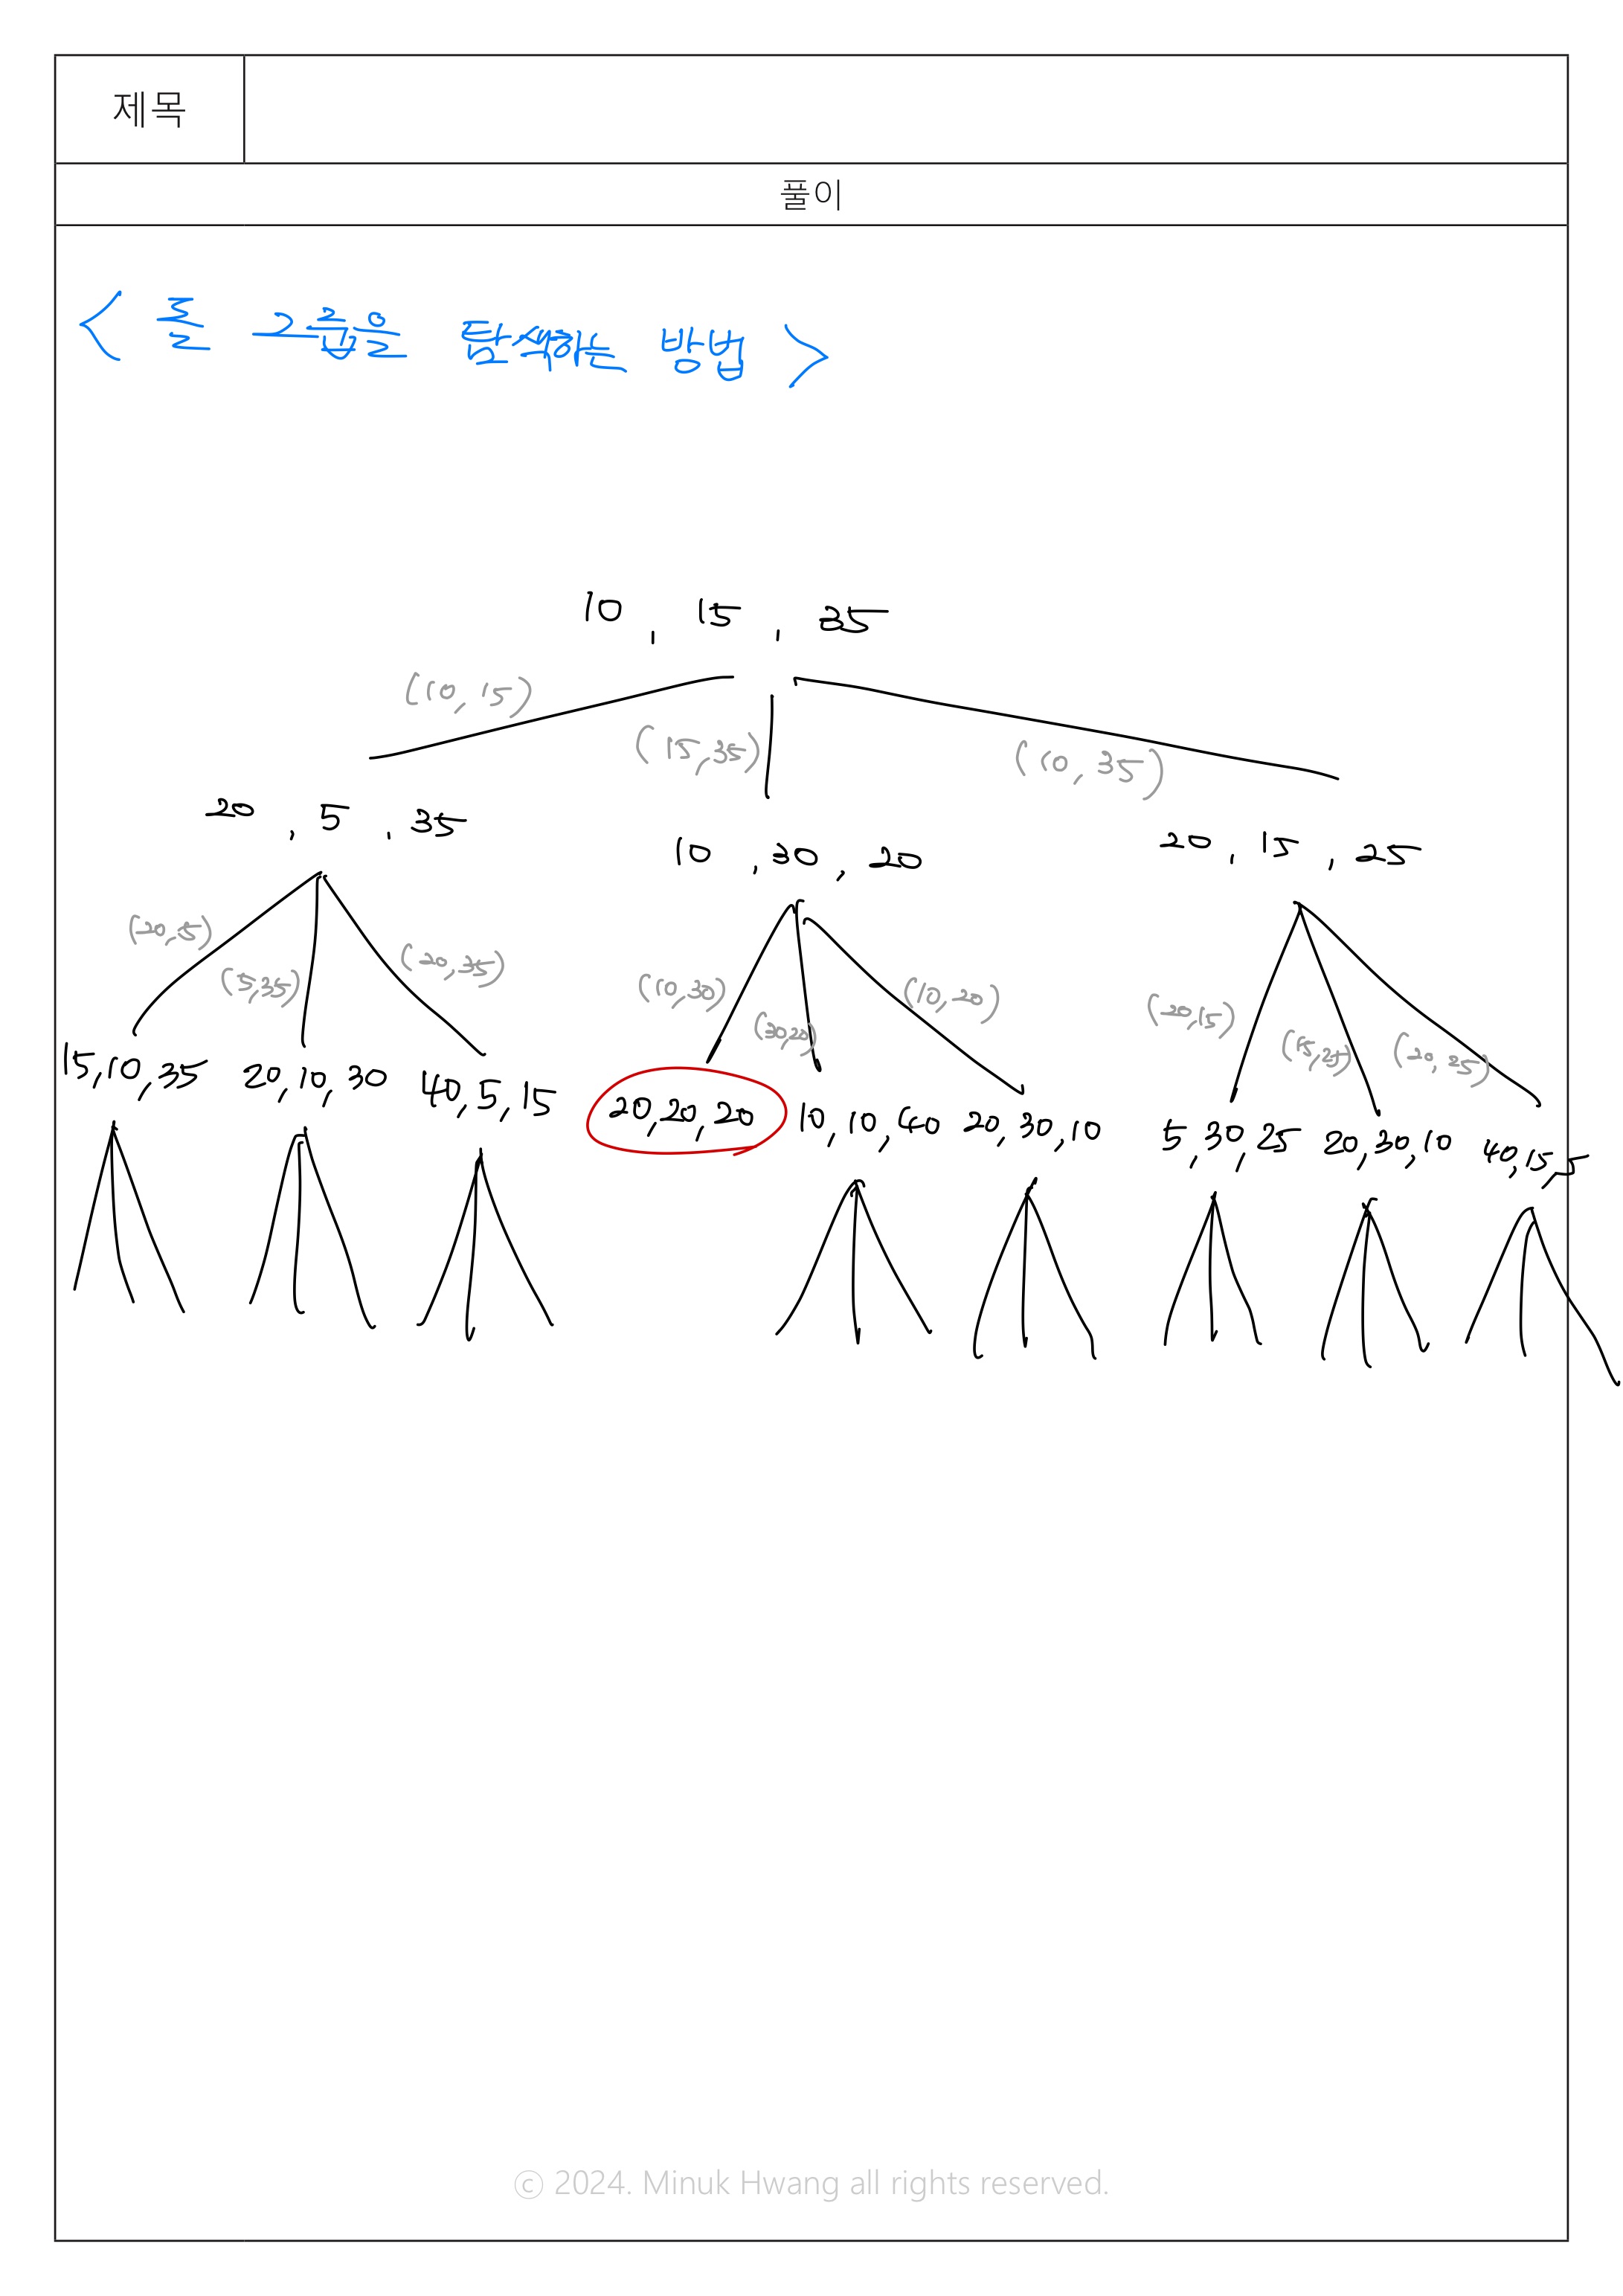 제목
풀이
< 돌 그룹을 탐색하는 방법 >
10 , 15 , 35
(10, 15) (15,35) (10, 35)
20 , 5 , 35 10 , 30 , 20 20 , 15 , 25
(20,5) (5,35) (20,35) (10,30) (30,20) (10,20) (20,15) (15,25) (20,25)
15,10,35 20,10,30 40,5,15 20,20,20 10,10,40 20,30,10 5,30,25 20,30,10 40,15,5
ⓒ 2024. Minuk Hwang all rights reserved.